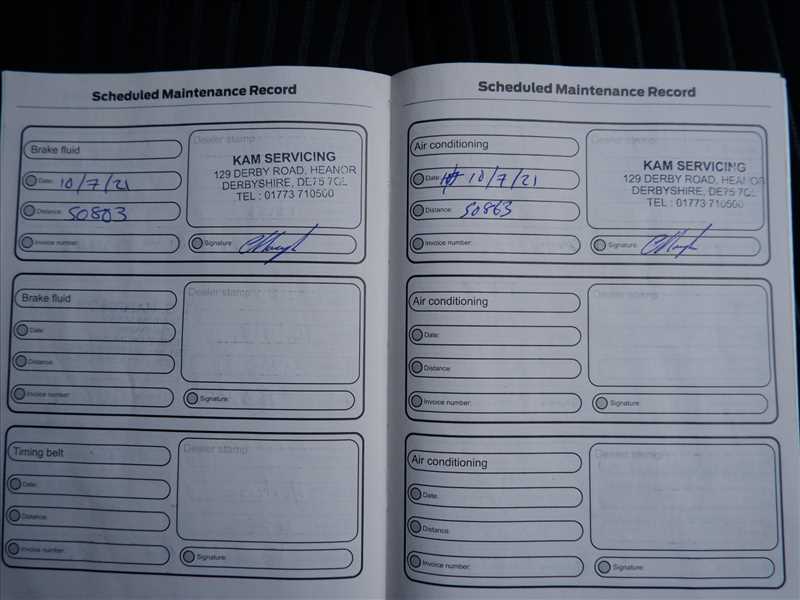 Scheduled Maintenance Record
Brake fluid
Dealer stamp
KAM SERVICING
129 DERBY ROAD, HEANOR
DERBYSHIRE, DE75 7QL
TEL : 01773 710500
Date: 10/7/21
Distance: 50803
Invoice number:
Signature:
Brake fluid
Dealer stamp
Date:
Distance:
Invoice number:
Signature:
Timing belt
Dealer stamp
Date:
Distance:
Invoice number:
Signature:
Scheduled Maintenance Record
Air conditioning
Dealer stamp
KAM SERVICING
129 DERBY ROAD, HEANOR
DERBYSHIRE, DE75 7QL
TEL : 01773 710500
Date: 10/7/21
Distance: 50863
Invoice number:
Signature:
Air conditioning
Dealer stamp
Date:
Distance:
Invoice number:
Signature:
Air conditioning
Dealer stamp
Date:
Distance:
Invoice number:
Signature: